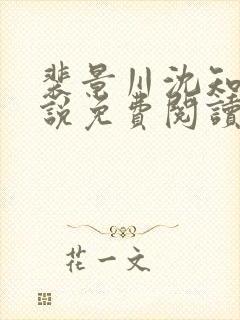 裴景川沈知
說免費閱讀
花一文